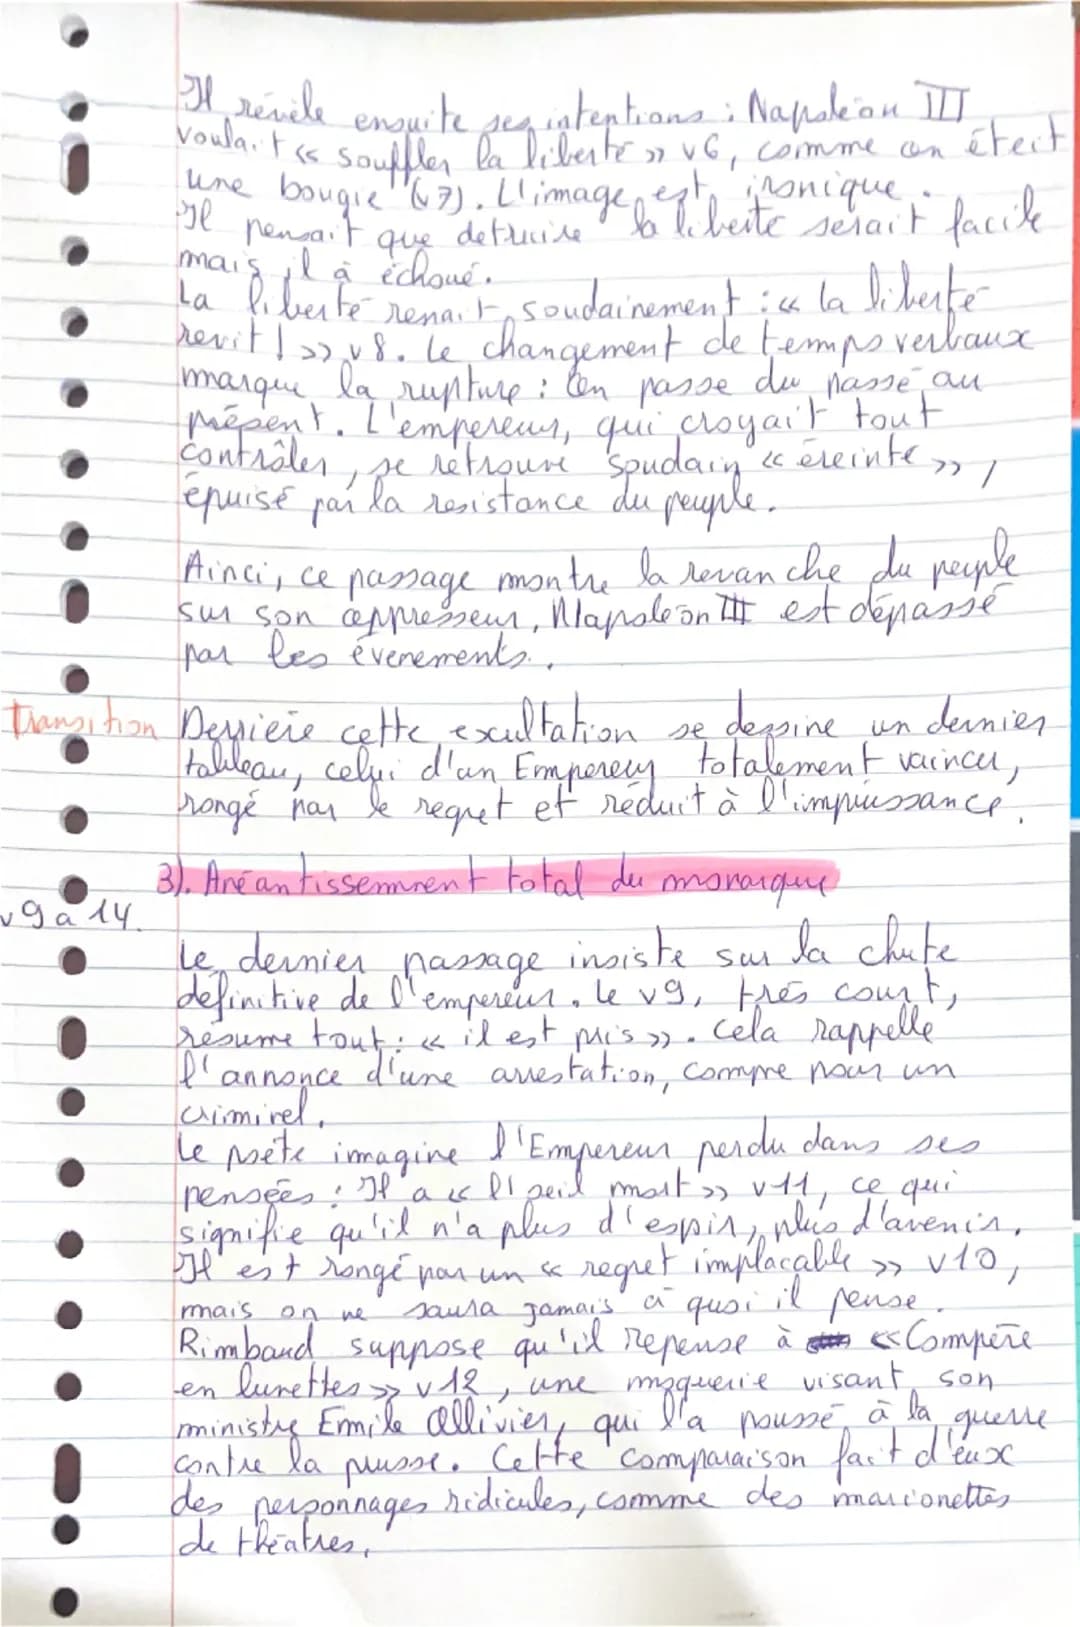 Il révèle ensuite ses intentions : Napoléon III
voulait « souffler la liberté » v6, comme on éteit
une bougie" (v7). L'image est ironique.
Il pensait que detruire la liberté serait facile
mais il à échoué.
La liberté renait soudainement : « la liberté
revit ! » v8. Le changement de temps verbaux
marque la rupture : on passe du passé au
présent. L'empereur, qui croyait tout
contrôler, se retrouve soudain « éreinté »,
épuisé par la resistance du peuple.
Ainci, ce passage montre la revanche du peuple
sur son oppresseur, Napoléon III est dépassé
par les évenements.
transition Derrière cette exultation se dessine un dernier
tableau, celui d'un Empereur totalement vaincu,
rongé par le regret et réduit à l'impuissance.
3). Anéantissement total du monarque
v9 à 14.
Le dernier passage insiste sur la chute
définitive de l'empereur. Le v9, très court,
résume tout : « il est pris ». Cela rappelle
l'annonce d'une arrestation, comme pour un
criminel.
Le poète imagine l'Empereur perdu dans ses
pensées : Il a « l'oeil mort » v11, ce qui
signifie qu'il n'a plus d'espir, plus d'avenir.
Il est rongé par un « regret implacable » v10,
mais on ne saura jamais à quoi il pense.
Rimbaud suppose qu'il repense à « Compère
en lunettes » v12, une moquerie visant son
ministre Emile Ollivier, qui l'a poussé à la guerre
contre la prusse. Cette comparaison fait d'eux
des personnages ridicules, comme des marionettes
de théatres,